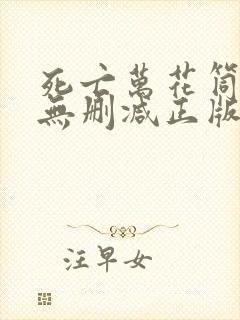 死亡萬花筒
無刪减正版
汪早女